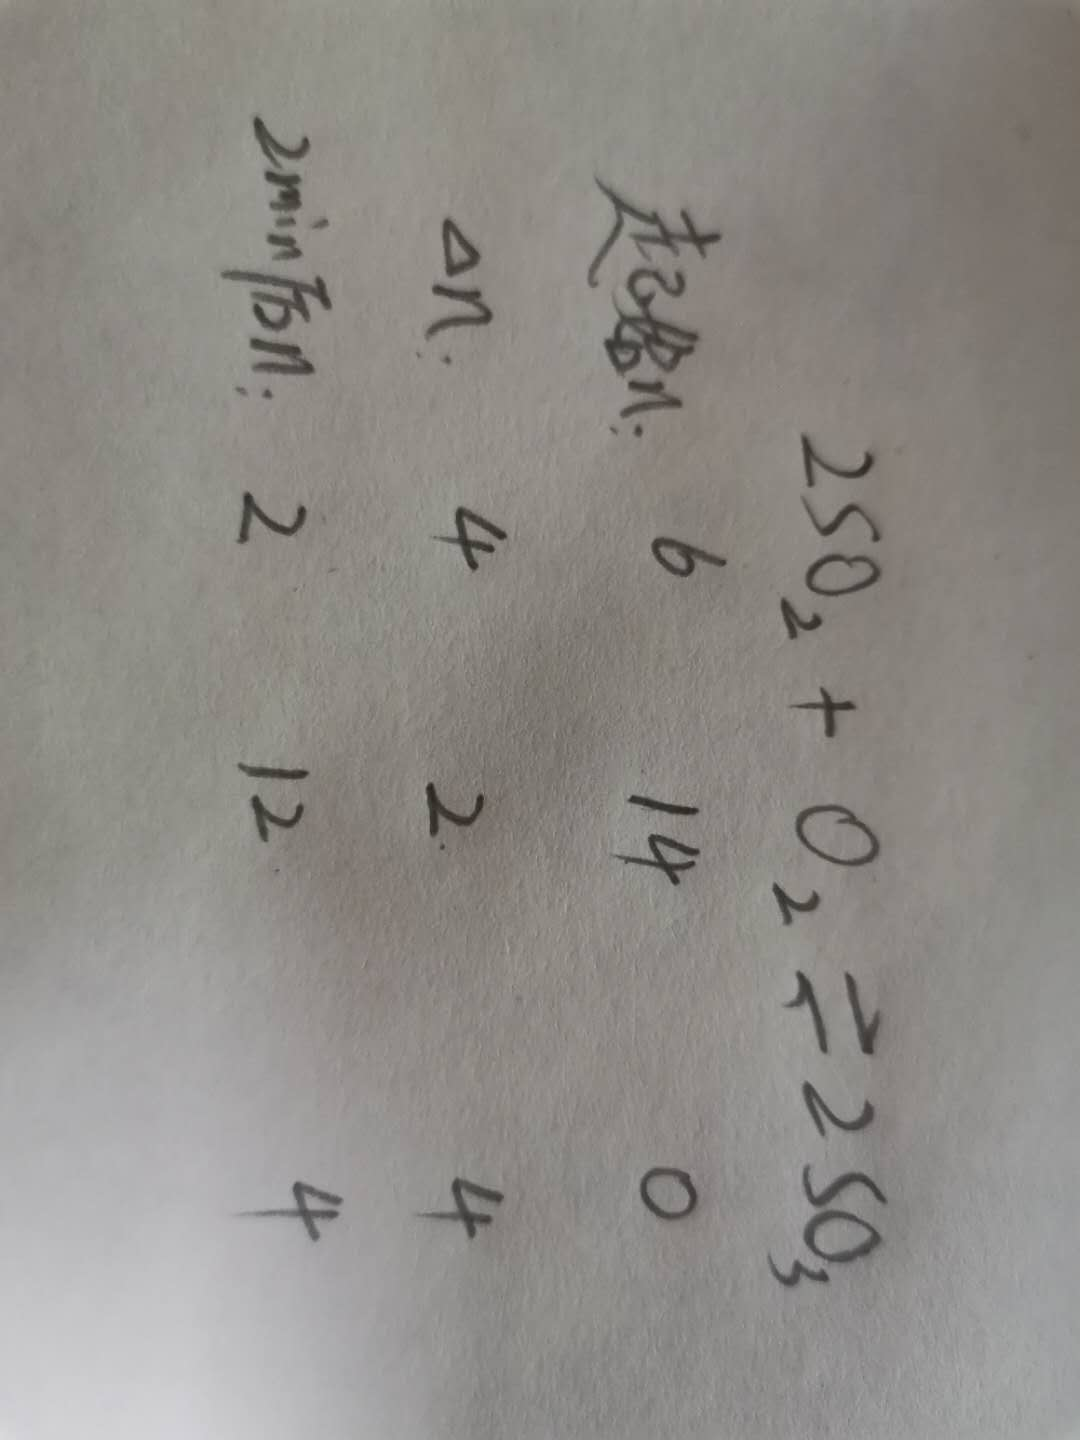 2SO₂ + O₂ ⇌ 2SO₃
起始n: 6 14 0
△n: 4 2 4
2min后n: 2 12 4